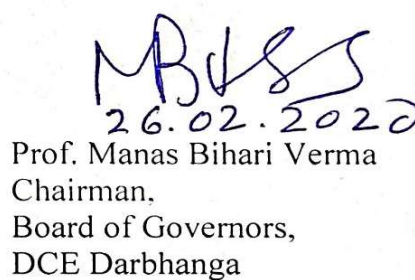 26.02.2020
Prof. Manas Bihari Verma
Chairman,
Board of Governors,
DCE Darbhanga